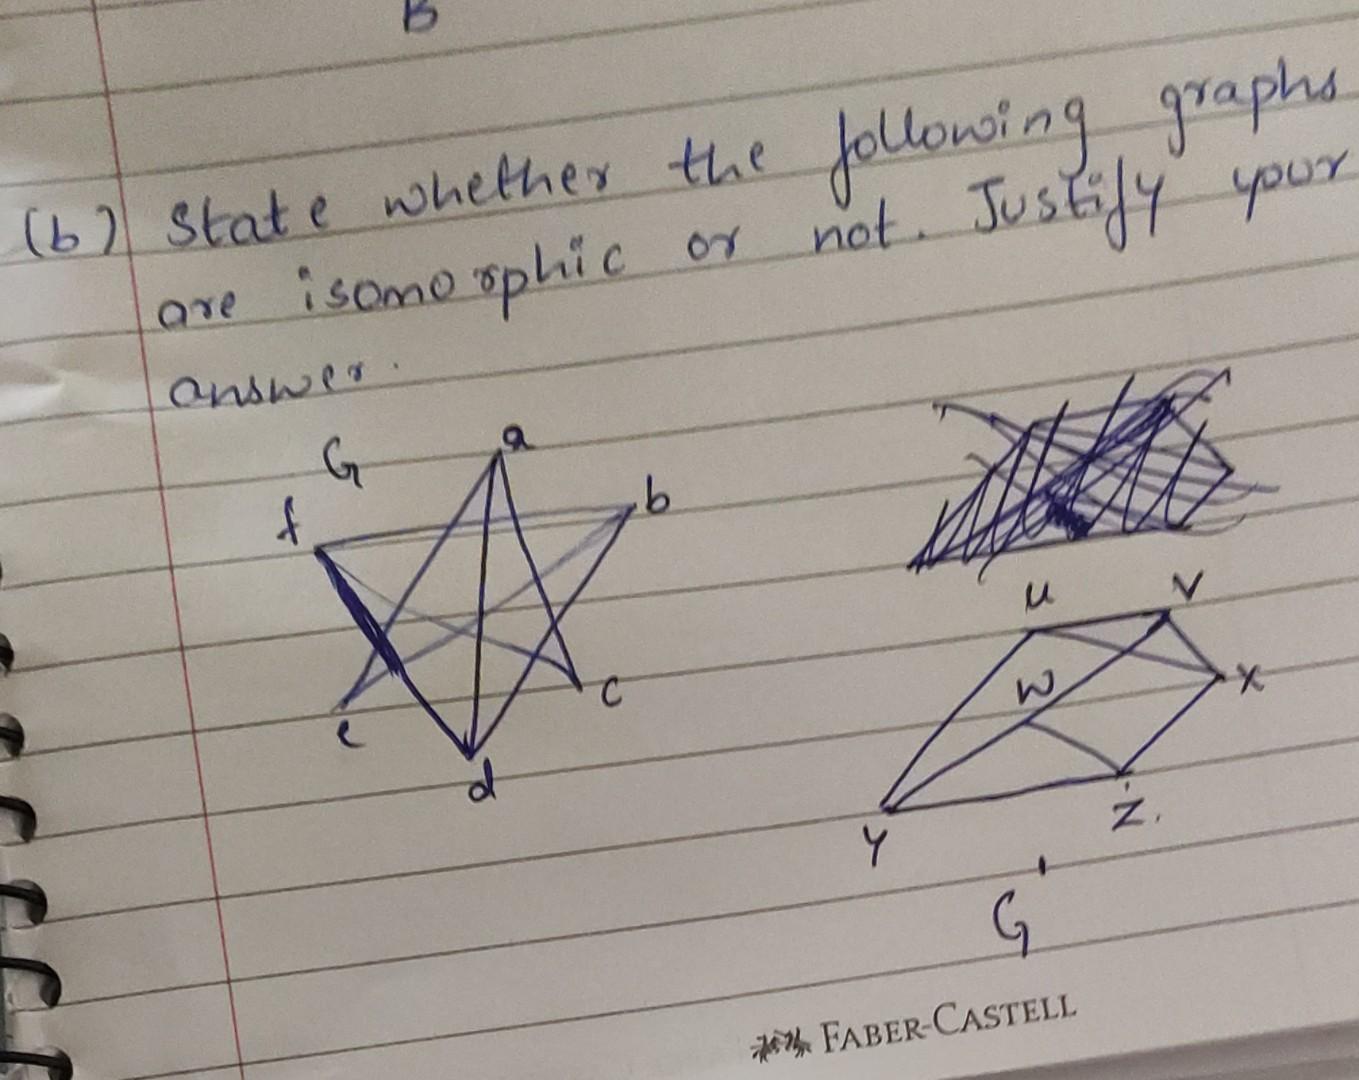 B
(b) State whether the following graphs
are isomorphic or not. Justify your
answer.
G
a
f
b
e
c
d
u
v
w
x
y
z.
G'
FABER-CASTELL